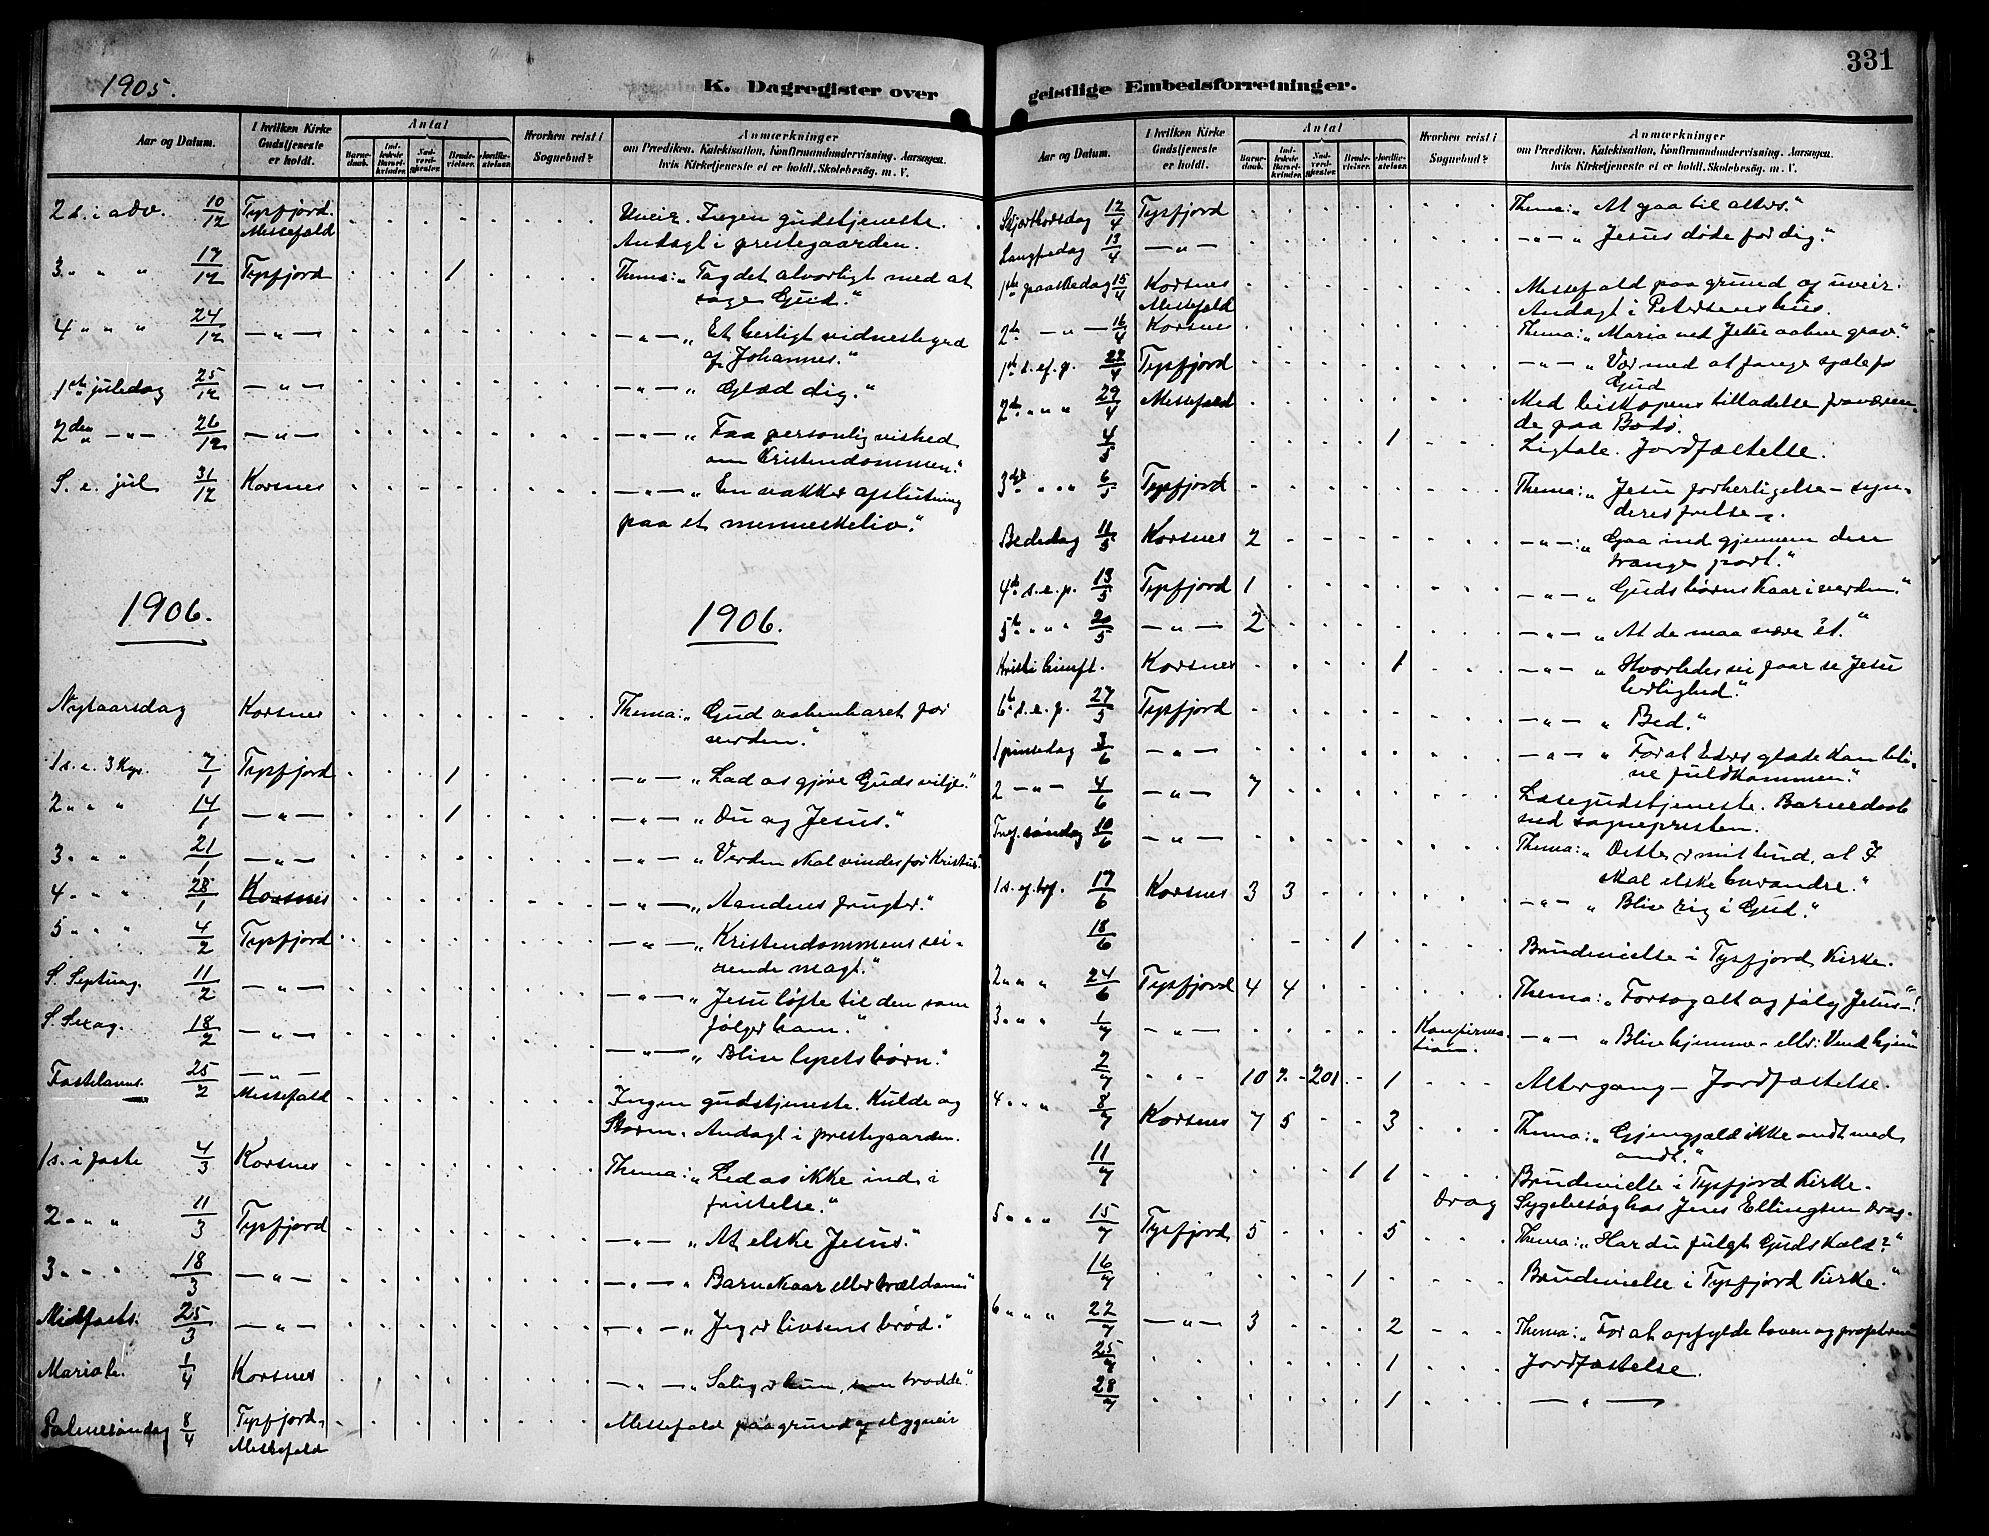 1905.
K. Dagregister over
Aar og Datum. I hvilken Kirke Gudstjeneste er holdt. Antal Barnedaab. Indledede Barselkvinder. Nadverdgjester. Brudevielser. Jordfæstelser. Hvorhen reist i Sognebud? Anmærkninger om Prædiken, Katekisation, Konfirmandundervisning. Aarsagen, hvis Kirketjeneste ei er holdt. Skolebesøg m. V.
2 s. i adv. 10/12 Tysfjord. Messefald Uveir. Ingen gudstjeneste.
Andagt i prestegaarden.
3. " " " 17/12 Tysfjord 1 Thema: „Tag det alvorligt med at
søge Gud."
4 " " " 24/12 — " — — " — „Et herligt vidnesbyrd
af Johannes."
1ste juledag 25/12 — " — — " — „Glæd dig."
2den — " — 26/12 — " — — " — „Faa personlig vished
om Kristendommen."
S. e. jul 31/12 Korsnes — " — „En vakker afslutning
paa et menneskeliv."
1906. 1906.
Nytaarsdag Korsnes Thema: „Gud aabenbaret for
verden."
1 s. e. 3 Kgr. 7/1 Tysfjord 1 — " — „Lad os gjøre Guds vilje."
2 " " " 14/1 — " — 1 — " — „Du og Jesus."
3 " " " 21/1 — " — — " — „Verden skal vindes for Kristus."
4 " " " 28/1 Korsnes — " — „Aandens frugter."
5 " " " 4/2 Tysfjord — " — „Kristendommens sei-
rende magt."
S. Septuag. 11/2 — " — — " — „Jesu løfte til den som
følger ham."
S. Sexag. 18/2 — " — — " — „Blive lysets børn."
Fastelavns. 25/2 — " — Messefald Ingen gudstjeneste. Kulde og
Storm. Andagt i prestegaarden.
1 s. i faste 4/3 Korsnes Thema: „Led os ikke ind i
fristelse."
2 " " " 11/3 Tysfjord — " — „At elske Jesus."
3 " " " 18/3 — " — — " — „Barnekaar eller trældom"
Midfasts. 25/3 — " — — " — „Jeg er livsens brød."
Maria b. 1/4 Korsnes — " — „Salig er hun, som trodde."
Palmesøndag 8/4 Tysfjord. Messefald Messefald paa grund af stygveir
331
geistlige Embedsforretninger.
Aar og Datum. I hvilken Kirke Gudstjeneste er holdt. Antal Barnedaab. Indledede Barselkvinder. Nadverdgjester. Brudevielser. Jordfæstelser. Hvorhen reist i Sognebud? Anmærkninger om Prædiken, Katekisation, Konfirmandundervisning. Aarsagen, hvis Kirketjeneste ei er holdt. Skolebesøg m. V.
Skjærthorsdag 12/4 Tysfjord Thema: „At gaa til alters."
Langfredag 13/4 — " — — " — „Jesus døde for dig."
1ste paaskedag 15/4 Korsnes Messefald Messefald paa grund af uveir.
Andagt i Petersens hus.
2den — " — 16/4 Korsnes Thema: „Maria ved Jesu aabne grav."
1ste s. ef. p. 22/4 Tysfjord — " — „Vær med at fange sjæle for
Gud
2den " " " 29/4 Messefald Med biskopens tilladelse fraværen-
de paa Bodø.
4/5 1 Ligtale. Jordfæstelse.
3dje " " " 6/5 Tysfjord Thema: „Jesu forherligelse – syn-
deres frelse –.
Bededag 11/5 Korsnes 2 — " —: „Gaa ind gjennem den
trange port."
4de s. e. p. 13/5 Tysfjord 1 — " — „Guds børns kaar i verden."
5te " " " 20/5 — " — 2 — " — „At de maa være ét."
Kristi himft. Korsnes 1 — " — „Hvorledes vi faar se Jesu
herlighed."
6te s. e. p. 27/5 Tysfjord — " — „Bed."
1 pinsedag 3/6 — " — — " — „For at Eders glæde kan bli-
ve fuldkommen."
2 — " — 4/6 — " — 7 Læsegudstjeneste. Barnedaab
ved sognepresten.
Tref. søndag 10/6 — " — Thema: „Dette er mit bud, at I
skal elske hverandre."
1 s. ef. tref. 17/6 Korsnes 3 3 — " — „Blive rig i Gud."
18/6 1 Brudevielse i Tysfjord Kirke.
2 " " " 24/6 Tysfjord 4 4 Thema: „Forsag alt og følg Jesus" –!
3 " " " 1/7 — " — Konfirma-
tion. — " — „Blive hjemme – eller: Vend hjem"
2/7 " " 10 7 201 1 Altergang – Jordfæstelse.
4 " " " 8/7 Korsnes 7 5 3 Thema: „Gjengjæld ikke ondt med
ondt."
11/7 1 1 Brudevielse i Tysfjord Kirke.
Drag Sygebesøg hos Jens Ellingsen Drag.
5 " " " 15/7 Tysfjord 5 5 Thema: „Har du fulgt Guds kald?"
16/7 1 Brudevielse i Tysfjord Kirke."
6 " " " 22/7 — " — 3 2 Thema: „For at opfylde loven og profeterne
25/7 1 Jordfæstelse.
28/7 1 — " —